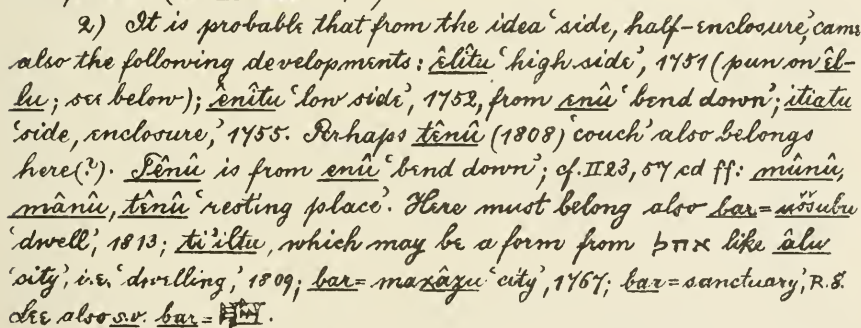 2) It is probable that from the idea 'side, half-enclosure,' came
also the following developments: êlîtu 'high side', 1751 (pun on êl-
lu; see below); ênîtu 'low side', 1752, from enû 'bend down'; itiatu
'side, enclosure,' 1755. Perhaps tênû (1808) 'couch' also belongs
here(?). Tênû is from enû 'bend down'; cf. II 23, 57 cd ff: mûnû,
mânû, tênû 'resting place'. Here must belong also bar =
'dwell', 1813; ti'iltu, which may be a form from אהל like âlu
'city', i.e. 'dwelling,' 1809; bar = maxâzu 'city', 1767; bar = sanctuary', R.S.
See also s.v. bar =